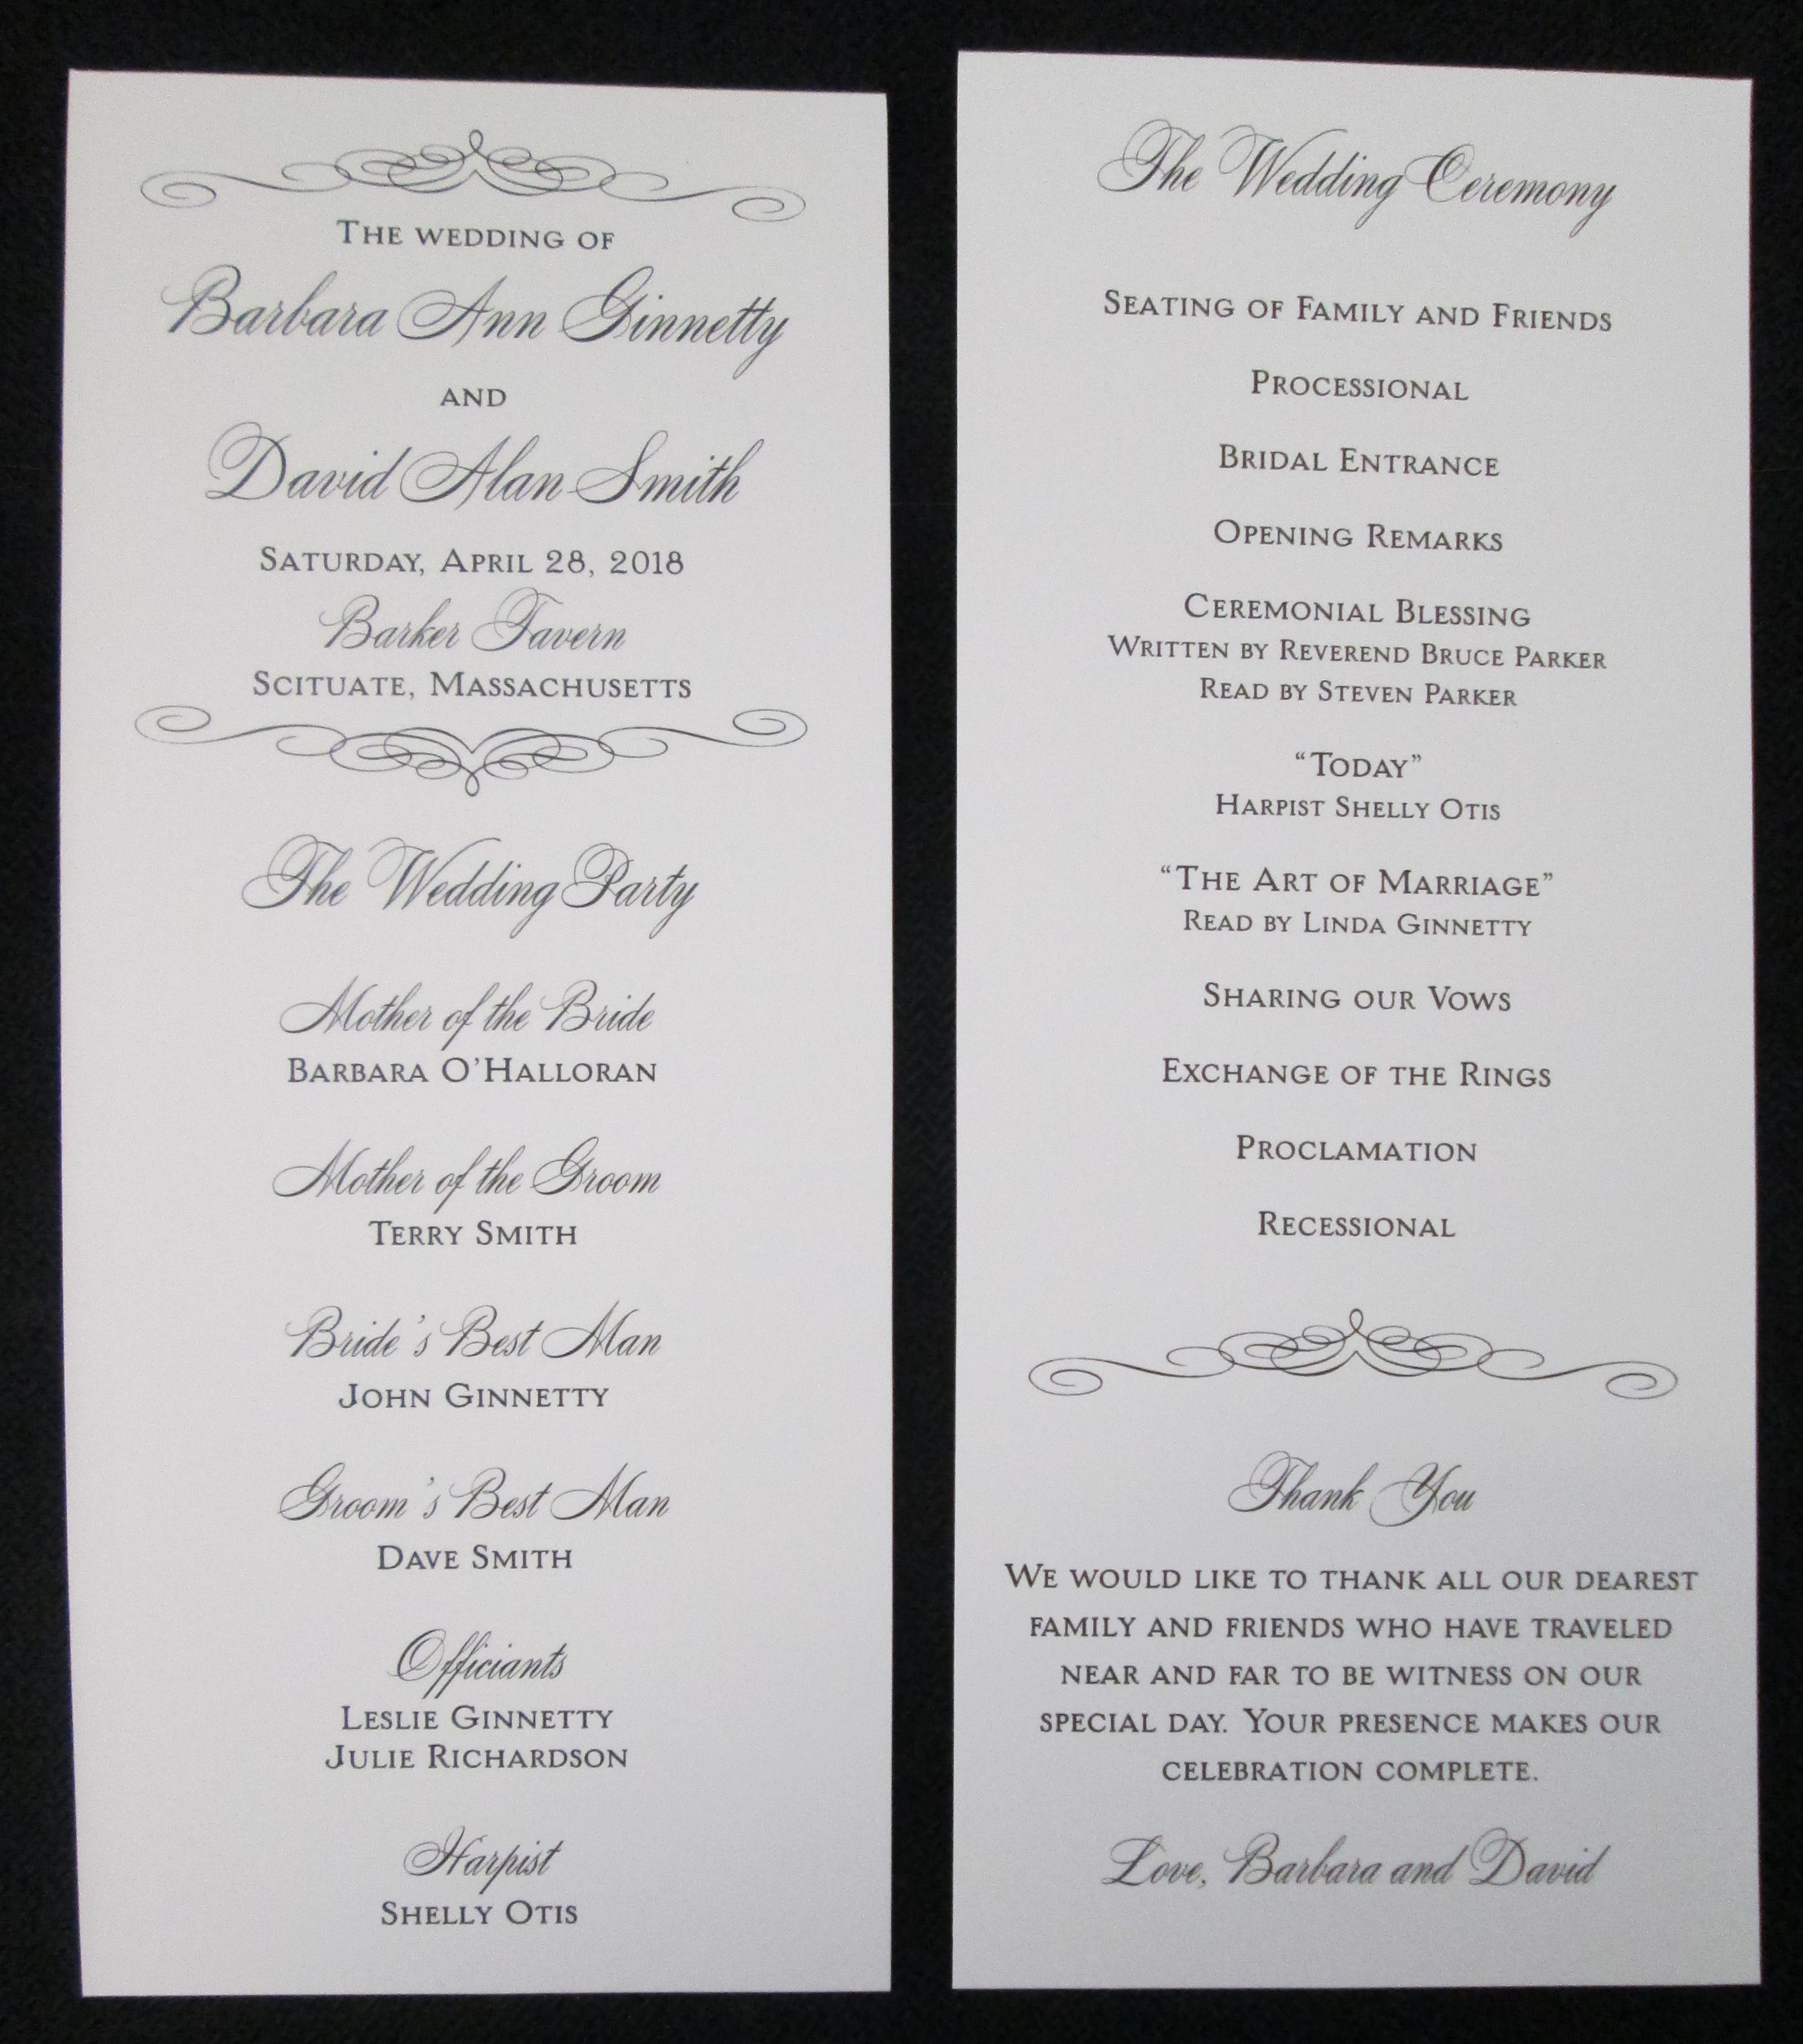 The wedding of
Barbara Ann Ginnetty
and
David Alan Smith
Saturday, April 28, 2018
Barker Tavern
Scituate, Massachusetts
The Wedding Party
Mother of the Bride
Barbara O'Halloran
Mother of the Groom
Terry Smith
Bride's Best Man
John Ginnetty
Groom's Best Man
Dave Smith
Officiants
Leslie Ginnetty
Julie Richardson
Harpist
Shelly Otis
The Wedding Ceremony
Seating of Family and Friends
Processional
Bridal Entrance
Opening Remarks
Ceremonial Blessing
Written by Reverend Bruce Parker
Read by Steven Parker
“Today”
Harpist Shelly Otis
“The Art of Marriage”
Read by Linda Ginnetty
Sharing our Vows
Exchange of the Rings
Proclamation
Recessional
Thank You
We would like to thank all our dearest
family and friends who have traveled
near and far to be witness on our
special day. Your presence makes our
celebration complete.
Love, Barbara and David